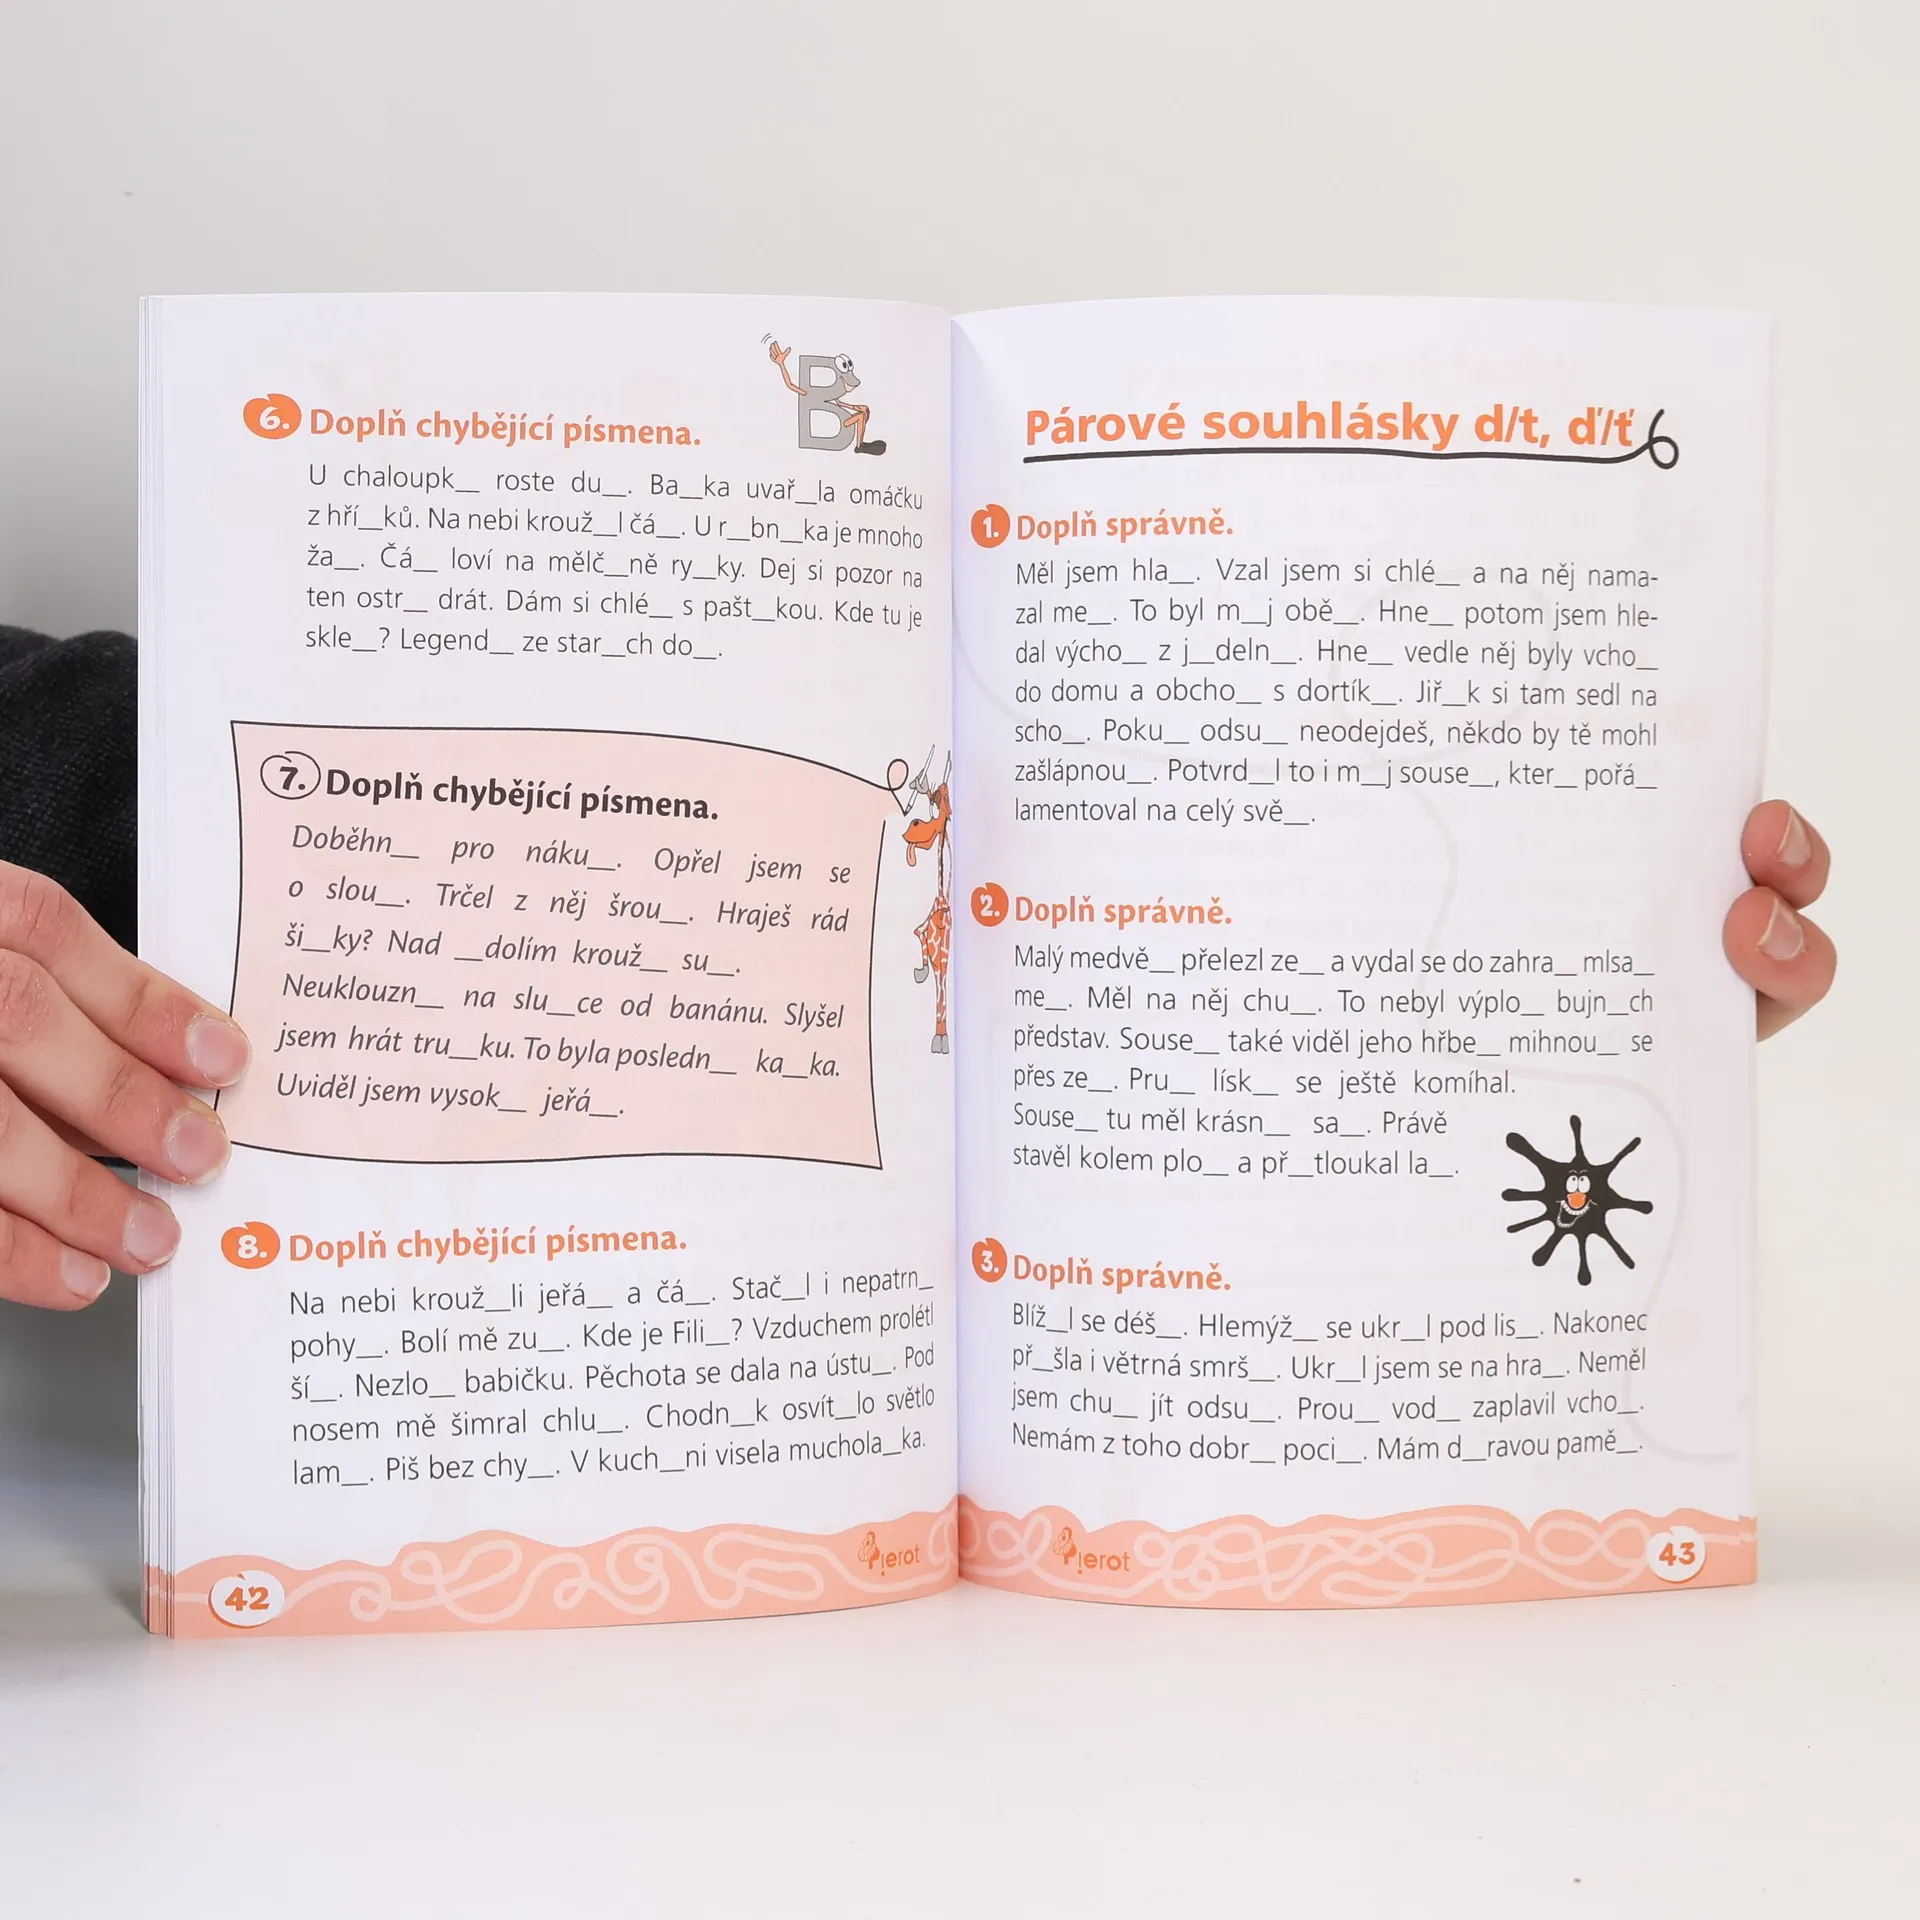 6. Doplň chybějící písmena.
U chaloupk__ roste du__. Ba__ka uvař__la omáčku
z hří__ků. Na nebi krouž__l čá__. U r__bn__ka je mnoho
ža__. Čá__ loví na mělč__ně ry__ky. Dej si pozor na
ten ostr__ drát. Dám si chlé__ s pašt__kou. Kde tu je
skle__? Legend__ ze star__ch do__.
7. Doplň chybějící písmena.
Doběhn__ pro náku__. Opřel jsem se
o slou__. Trčel z něj šrou__. Hraješ rád
ši__ky? Nad __dolím krouž__ su__.
Neuklouzn__ na slu__ce od banánu. Slyšel
jsem hrát tru__ku. To byla posledn__ ka__ka.
Uviděl jsem vysok__ jeřá__.
8. Doplň chybějící písmena.
Na nebi krouž__li jeřá__ a čá__. Stač__l i nepatrn__
pohy__. Bolí mě zu__. Kde je Fili__? Vzduchem prolétl
ší__. Nezlo__ babičku. Pěchota se dala na ústu__. Pod
nosem mě šimral chlu__. Chodn__k osvít__lo světlo
lam__. Piš bez chy__. V kuch__ni visela muchola__ka.
Pierot
42
Párové souhlásky d/t, ď/ť
1. Doplň správně.
Měl jsem hla__. Vzal jsem si chlé__ a na něj nama-
zal me__. To byl m__j obě__. Hne__ potom jsem hle-
dal výcho__ z j__deln__. Hne__ vedle něj byly vcho__
do domu a obcho__ s dortík__. Jiř__k si tam sedl na
scho__. Poku__ odsu__ neodejdeš, někdo by tě mohl
zašlápnou__. Potvrd__l to i m__j souse__, kter__ pořá__
lamentoval na celý svě__.
2. Doplň správně.
Malý medvě__ přelezl ze__ a vydal se do zahra__ mlsa__
me__. Měl na něj chu__. To nebyl výplo__ bujn__ch
představ. Souse__ také viděl jeho hřbe__ mihnou__ se
přes ze__. Pru__ lísk__ se ještě komíhal.
Souse__ tu měl krásn__ sa__. Právě
stavěl kolem plo__ a př__tloukal la__.
3. Doplň správně.
Blíž__l se déš__. Hlemýž__ se ukr__l pod lis__. Nakonec
př__šla i větrná smrš__. Ukr__l jsem se na hra__. Neměl
jsem chu__ jít odsu__. Prou__ vod__ zaplavil vcho__.
Nemám z toho dobr__ poci__. Mám d__ravou pamě__.
Pierot
43